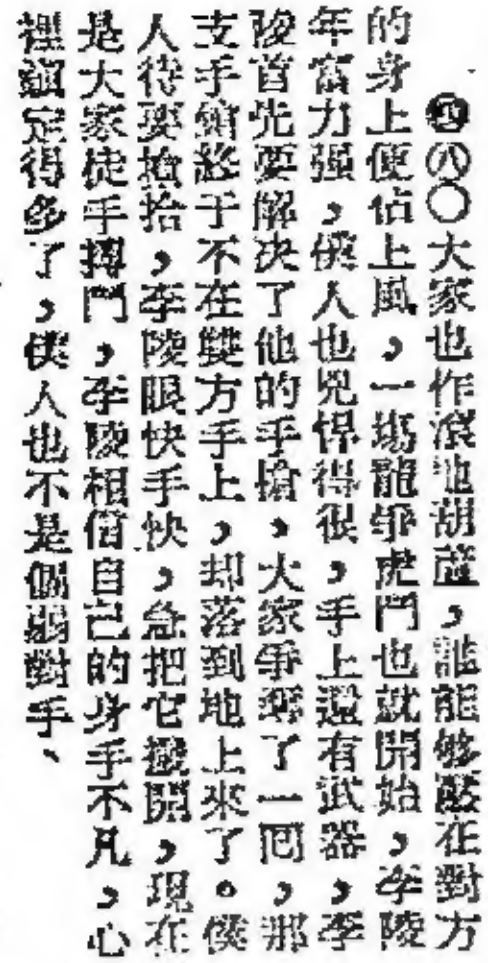 四八〇大家也作滾地胡蘆，誰能够壓在對方
的身上便佔上風，一塲龍爭虎鬥也就開始，李陵
年富力强，僕人也兇悍得很，手上還有武器，李
陵首先要解決了他的手槍，大家爭奪了一囘，那
支手鎗終于不在雙方手上，却落到地上來了。僕
人待要搶拾，李陵眼快手快，急把它撥開，現在
是大家徒手搏鬥，李陵相信自己的身手不凡，心
裡鎭定得多了，僕人也不是個弱對手、